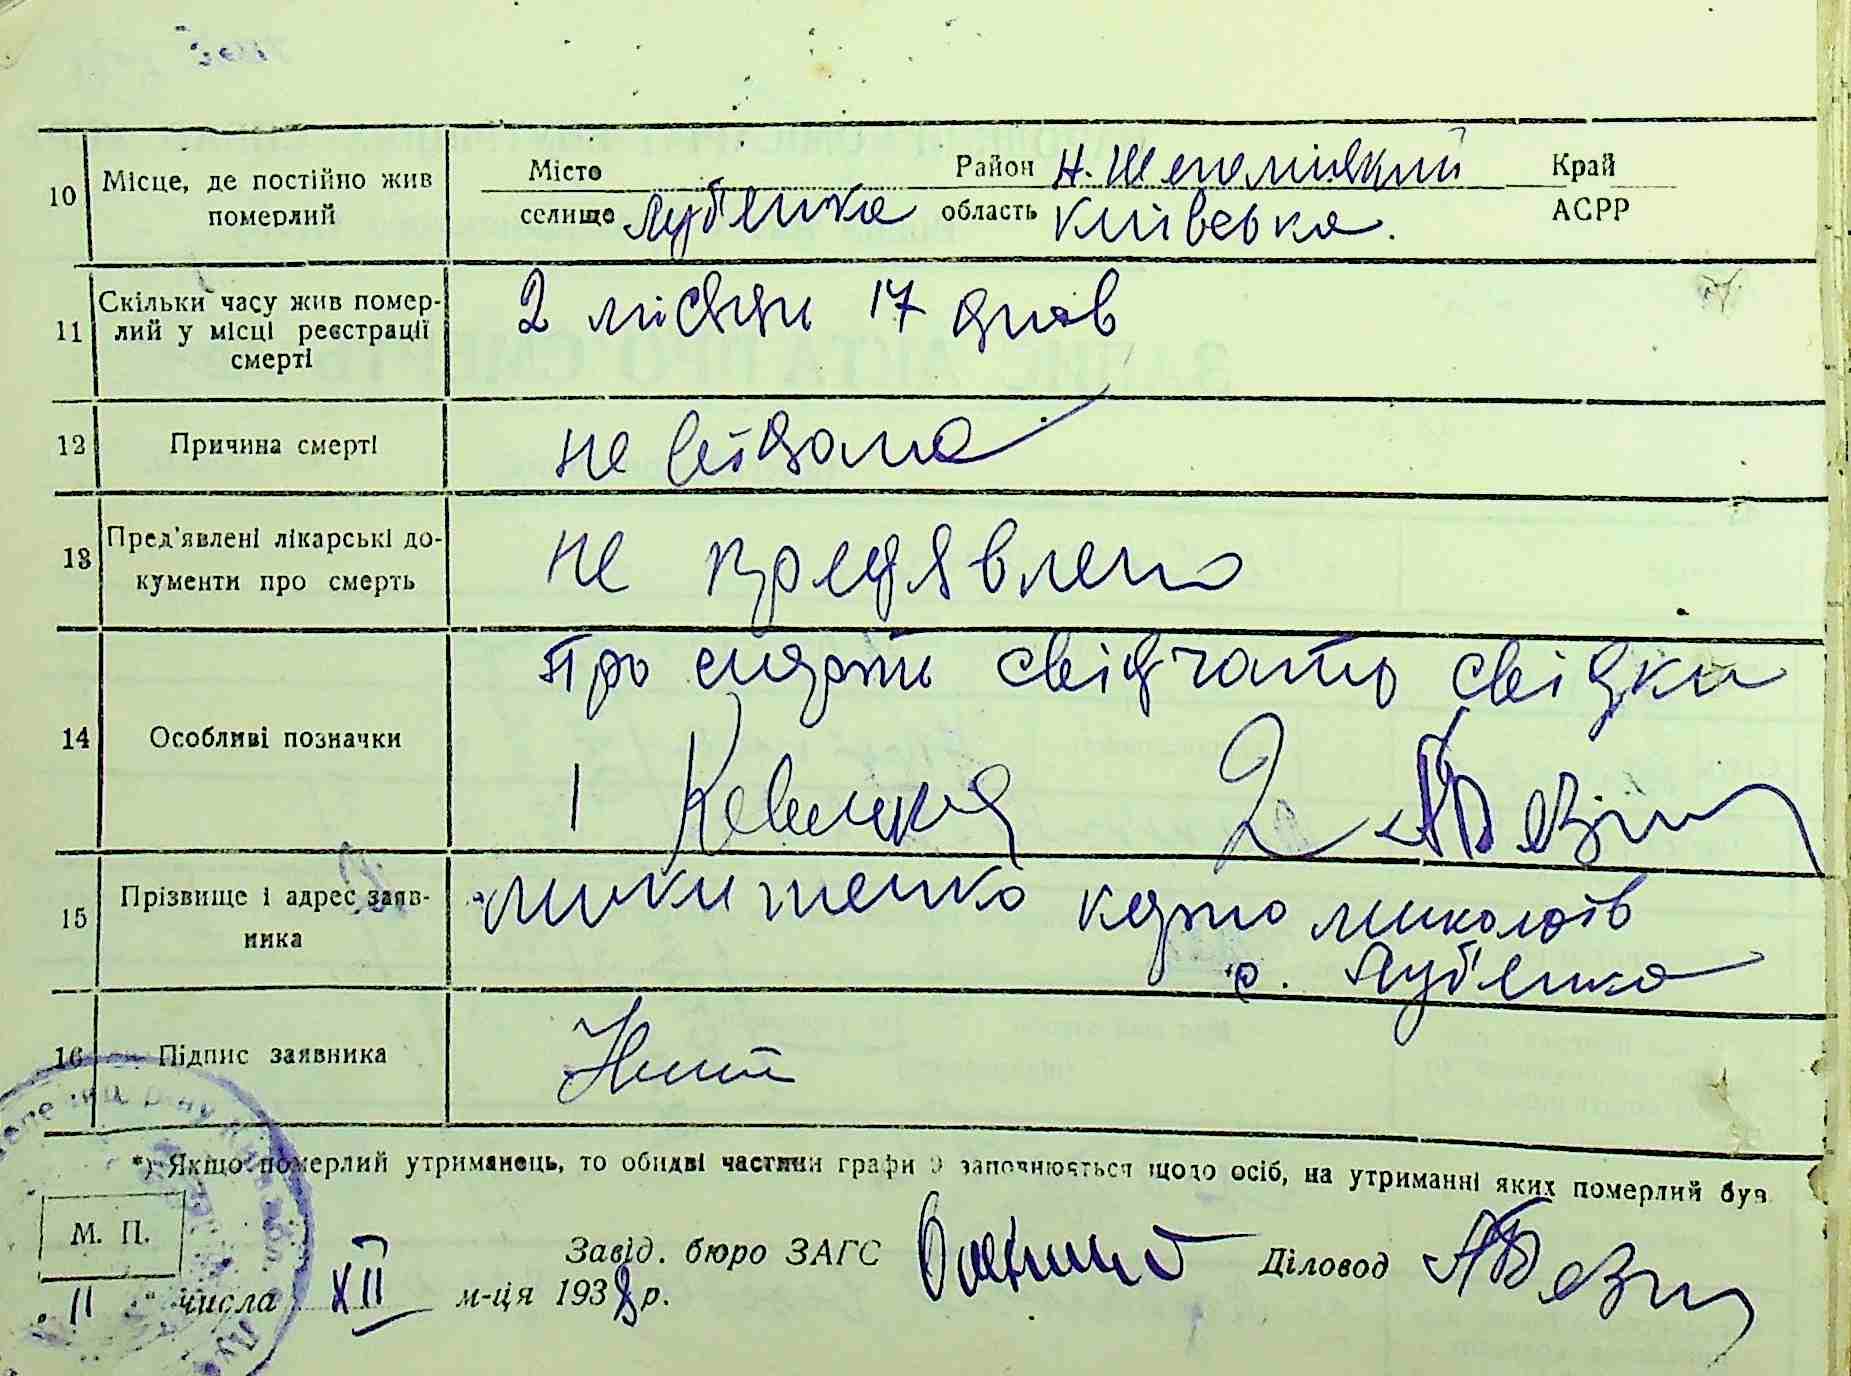 10 Місце, де постійно жив померлий
Місто Район Н. Шепелицький Край
селище Луб'янка область Київська. АСРР
11 Скільки часу жив помер-
лий у місці реєстрації
смерті
2 місяци 17 днів
12 Причина смерті
не відома
13 Пред'явлені лікарські до-
кументи про смерть
не предявлено
14 Особливі позначки
про смерть свідчать свідки
1 2
15 Прізвище і адрес заяв-
ника
Микитенко миколаїв
с. Луб'янка
16 Підпис заявника
*) Якщо померлий утриманець, то обидві частини графи 9 заповнюється щодо осіб, на утриманні яких померлий був
М. П.
Завід. бюро ЗАГС Діловод
„11" числа XII м-ця 1938 р.